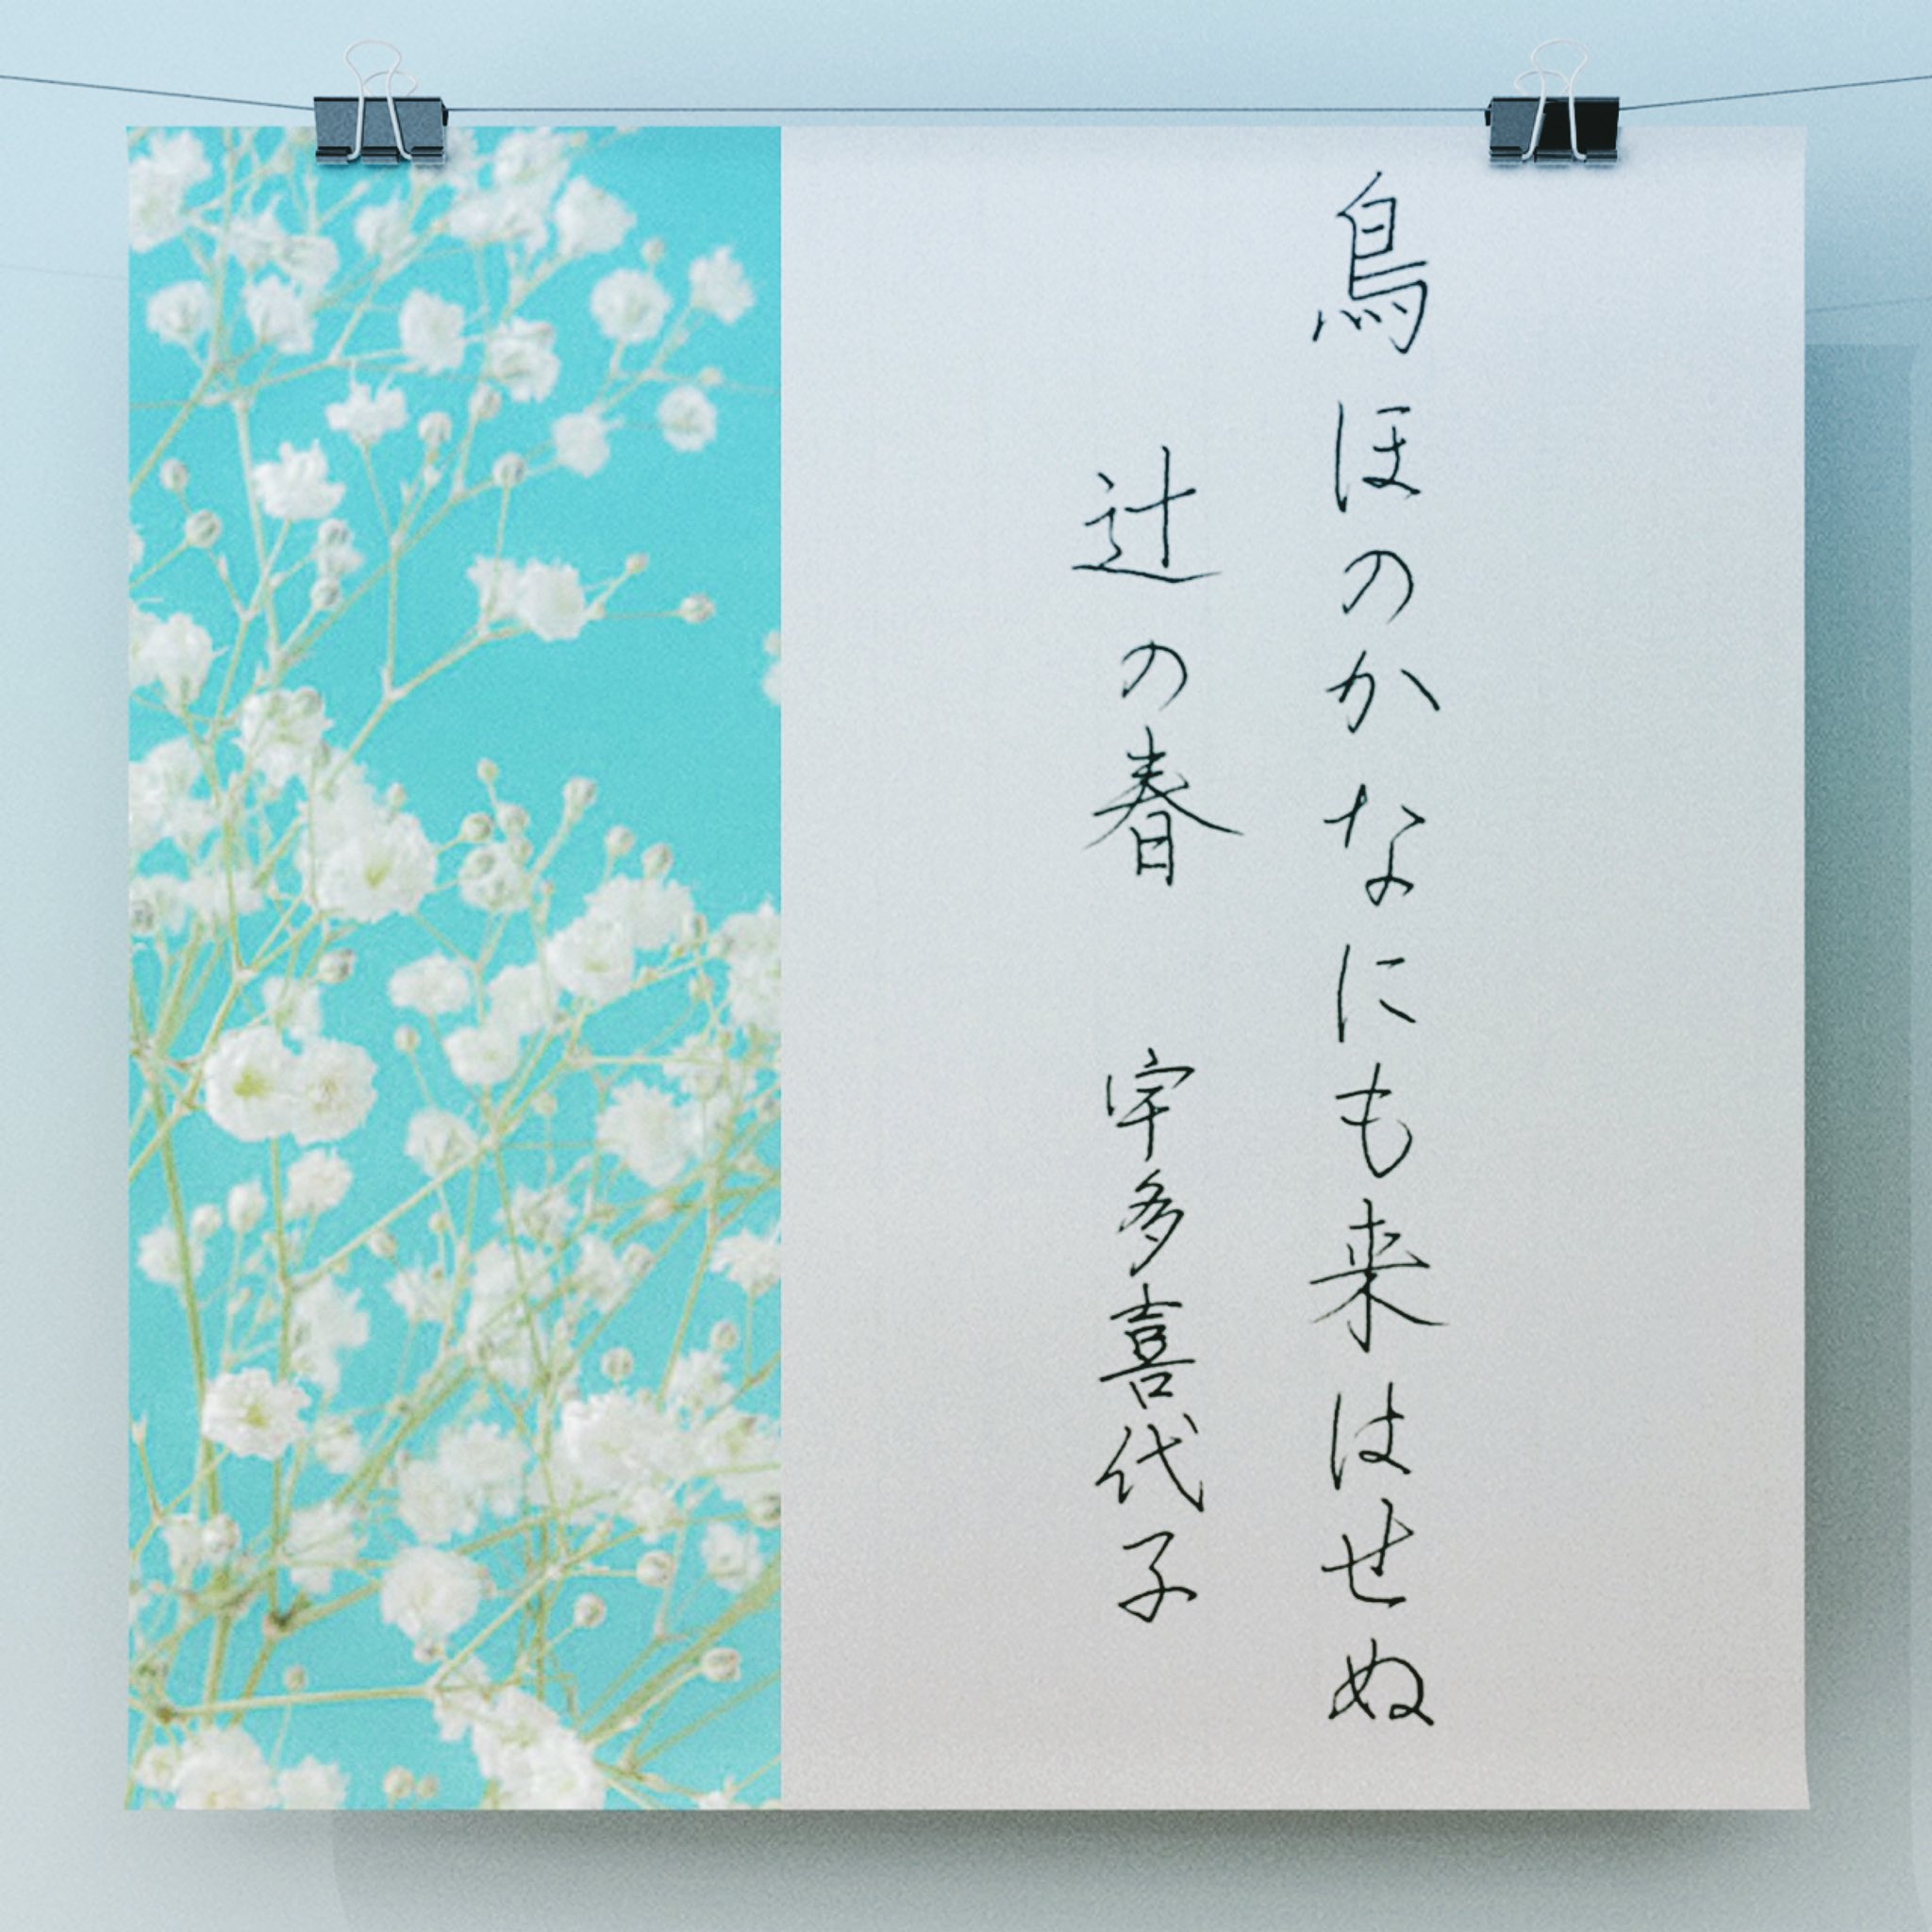 鳥ほのかなにも来はせぬ
辻の春 宇多喜代子